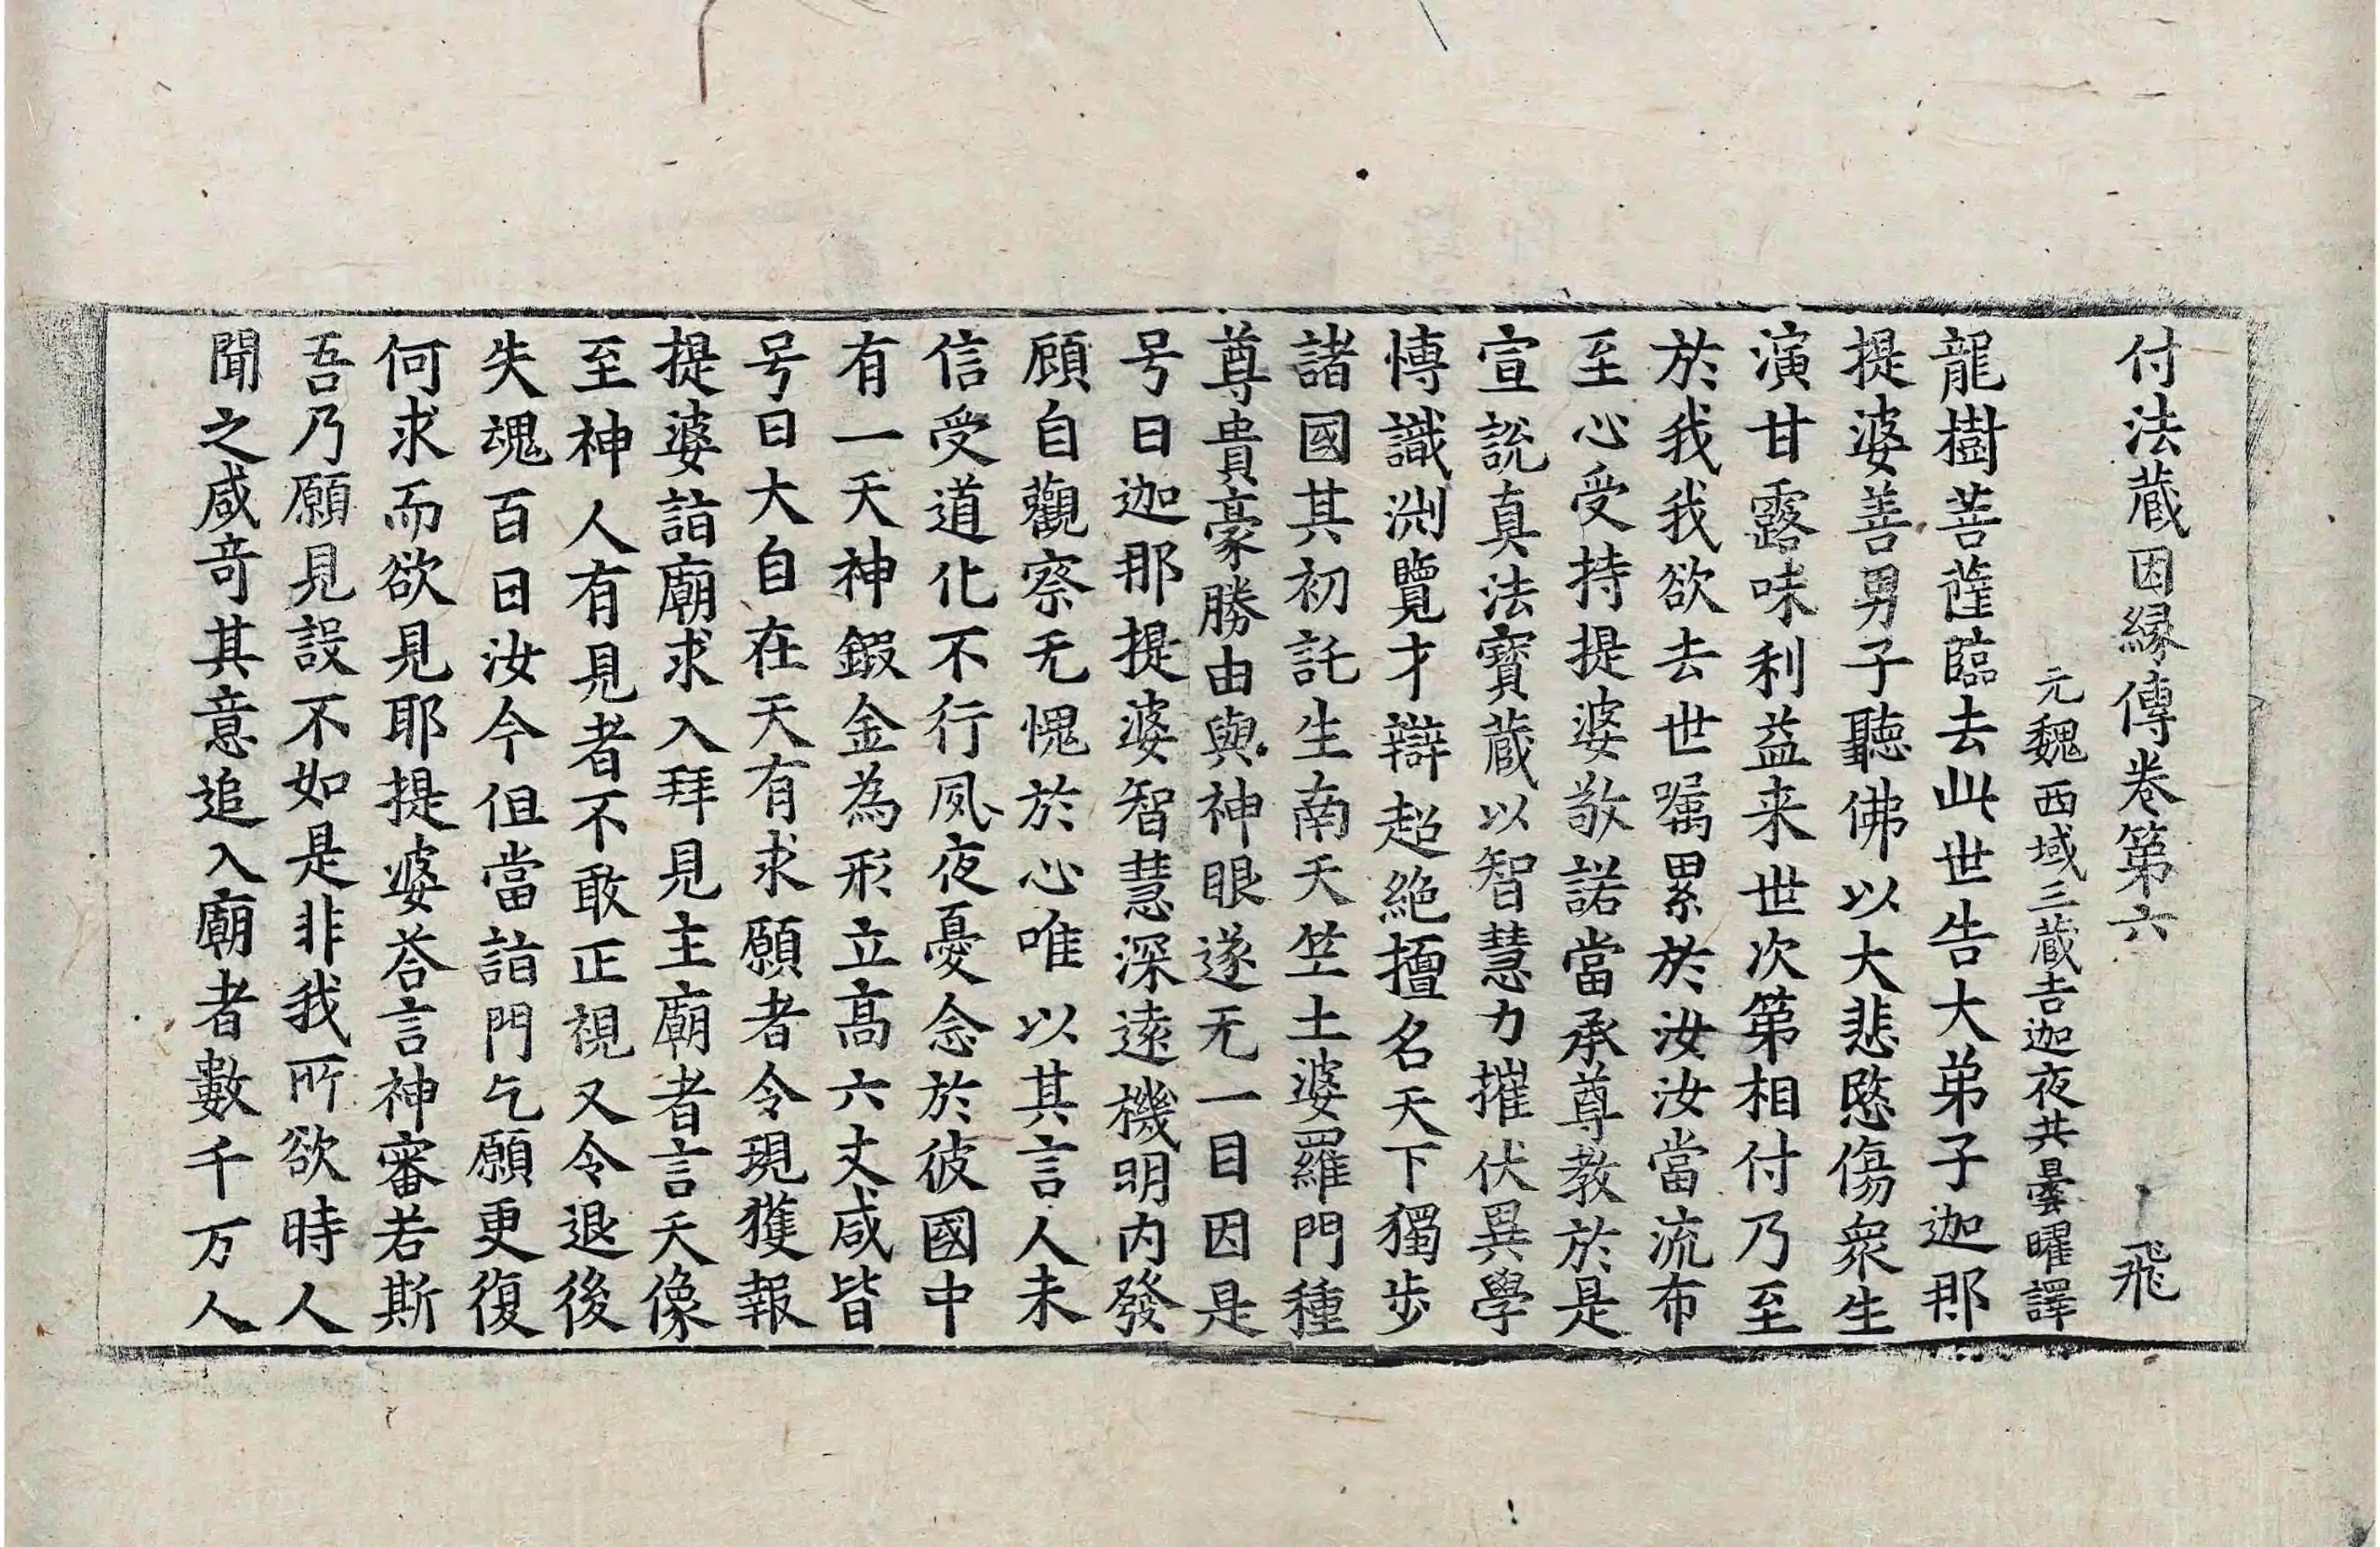 付法蔵因縁傳卷第六　飛
元魏西域三蔵吉迦夜共曇曜譯
龍樹菩薩臨去此世告大弟子迦那
提婆善男子聽佛以大悲愍傷衆生
演甘露味利益来世次第相付乃至
於我我欲去世嘱累於汝汝當流布
至心受持提婆敬諾當承尊教於是
宣說真法寶蔵以智慧力摧伏異學
博識渊覽才辯超絶擅名天下獨步
諸國其初託生南天竺土婆羅門種
尊貴豪勝由與神眼遂无一目因是
号曰迦那提婆智慧深遠機明内發
顧自觀察无愧於心唯以其言人未
信受道化不行夙夜憂念於彼國中
有一天神鍜金為形立髙六丈咸皆
号曰大自在天有求願者令現獲報
提婆詣廟求入拜見主廟者言天像
至神人有見者不敢正視又令退後
失魂百日汝今但當詣門乞願更復
何求而欲見耶提婆荅言神審若斯
吾乃願見設不如是非我所欲時人
聞之咸竒其意追入廟者數千万人